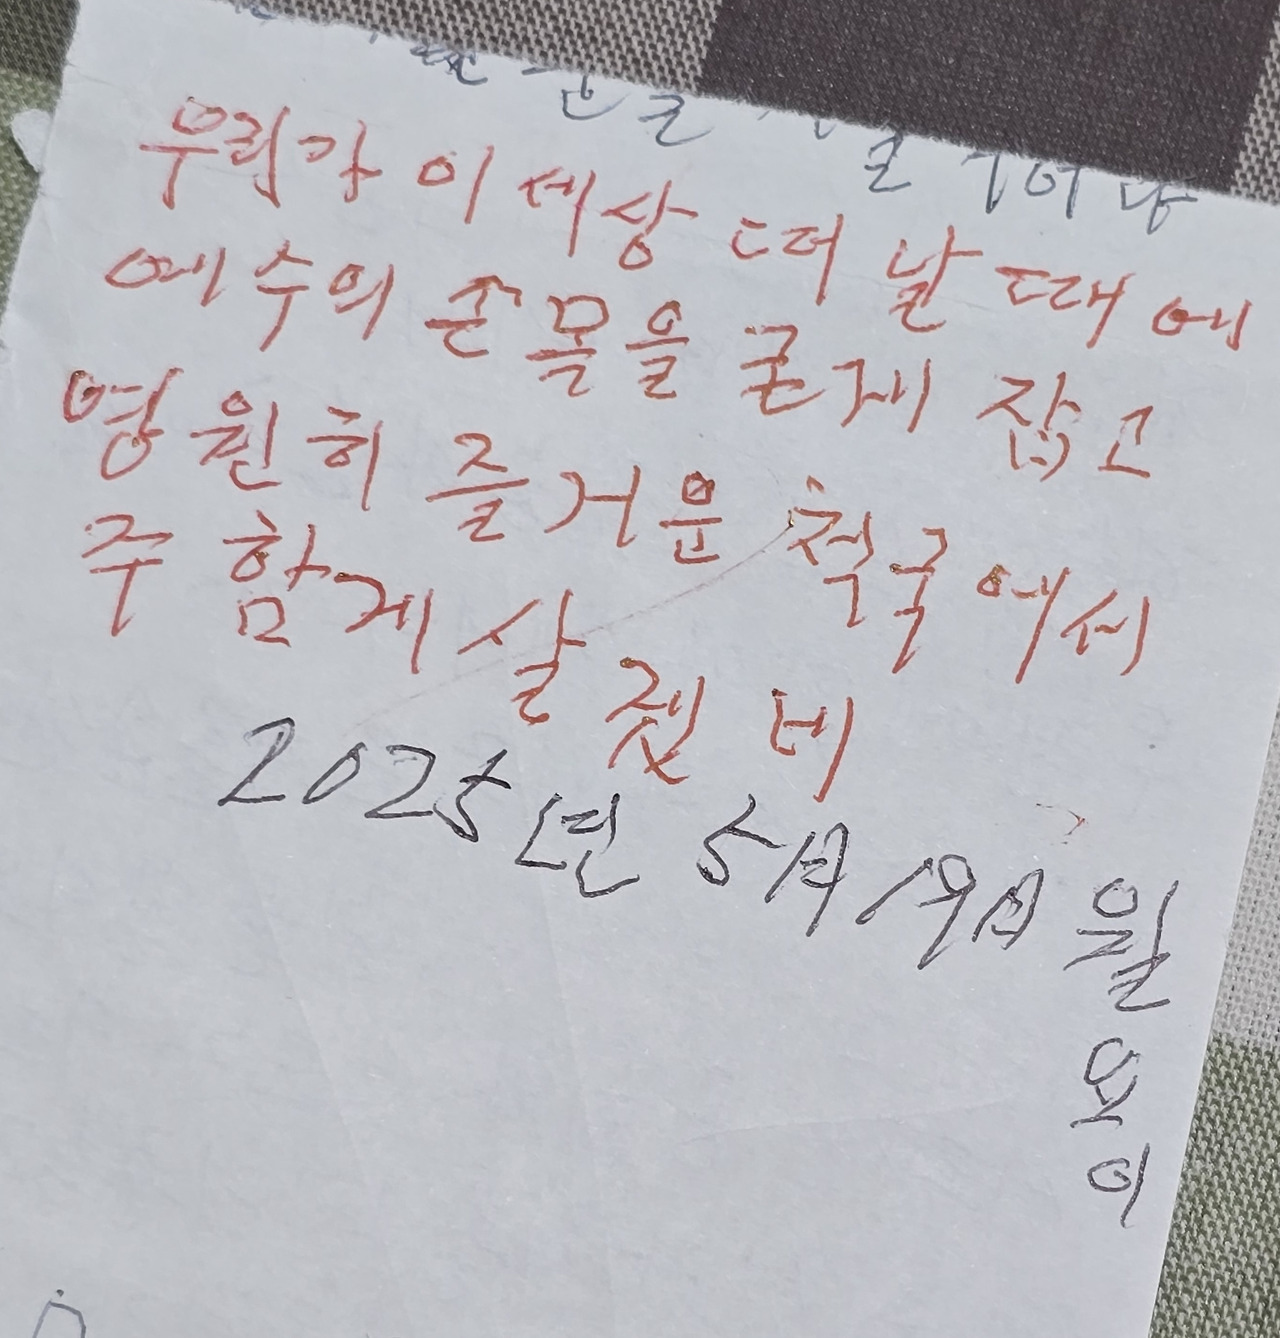 우리가 이 세상 떠 날 때 에
예수의 손 목을 굳게 잡고
영원히 즐거운 척국에서
주 함게 살 겟 네
2025년 5月19日 월
요
이